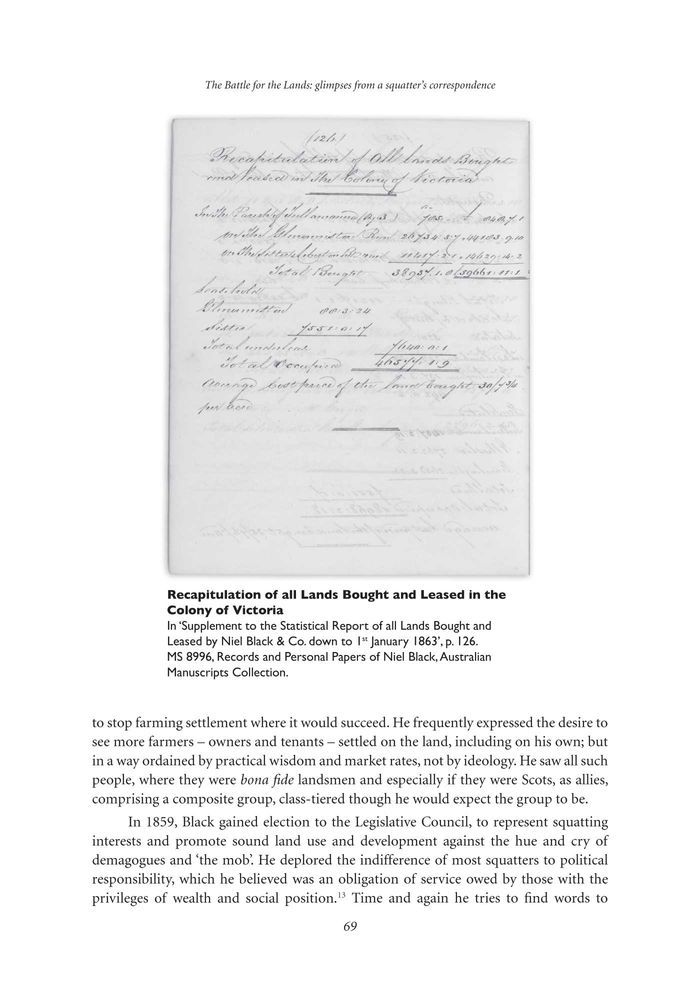 The Battle for the Lands: glimpses from a squatter's correspondence
(126)
Recapitulation of All Lands Bought
and Leased in The Colony of Victoria
In The Parish of Tullamarine
on The Glenormiston Run
Total Bought 38937.1.0
Leasehold
Glenormiston
7551.0.17
Total under lease
Total Occupied 46577.1.9
Average Cost price of the land bought
per acre
Recapitulation of all Lands Bought and Leased in the
Colony of Victoria
In 'Supplement to the Statistical Report of all Lands Bought and
Leased by Niel Black & Co. down to 1st January 1863', p. 126.
MS 8996, Records and Personal Papers of Niel Black, Australian
Manuscripts Collection.
to stop farming settlement where it would succeed. He frequently expressed the desire to
see more farmers – owners and tenants – settled on the land, including on his own; but
in a way ordained by practical wisdom and market rates, not by ideology. He saw all such
people, where they were bona fide landsmen and especially if they were Scots, as allies,
comprising a composite group, class-tiered though he would expect the group to be.
In 1859, Black gained election to the Legislative Council, to represent squatting
interests and promote sound land use and development against the hue and cry of
demagogues and 'the mob'. He deplored the indifference of most squatters to political
responsibility, which he believed was an obligation of service owed by those with the
privileges of wealth and social position.13 Time and again he tries to find words to
69